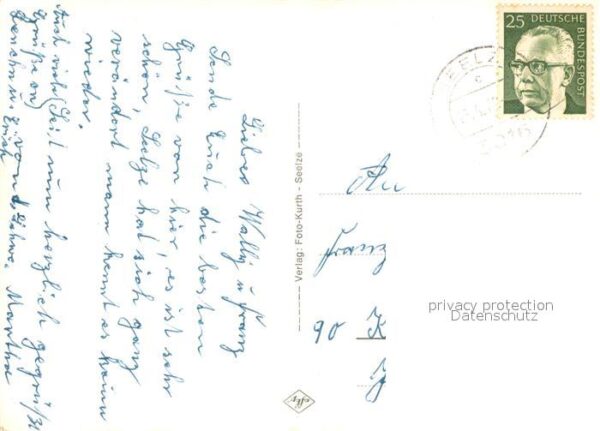 Liebes Wally u Franz
Sende Euch die besten
Grüße von hier, es ist sehr
schön, Seelze hat sich ganz
verändert mann kennt es kaum
wieder.
Seit nun herzlich gegrüßt
von Martha
Auch viele
Grüße an
Erich
Verlag: Foto-Kurth - Seelze
25 DEUTSCHE BUNDESPOST
SEELZE
An
Franz
90 K
privacy protection
Datenschutz